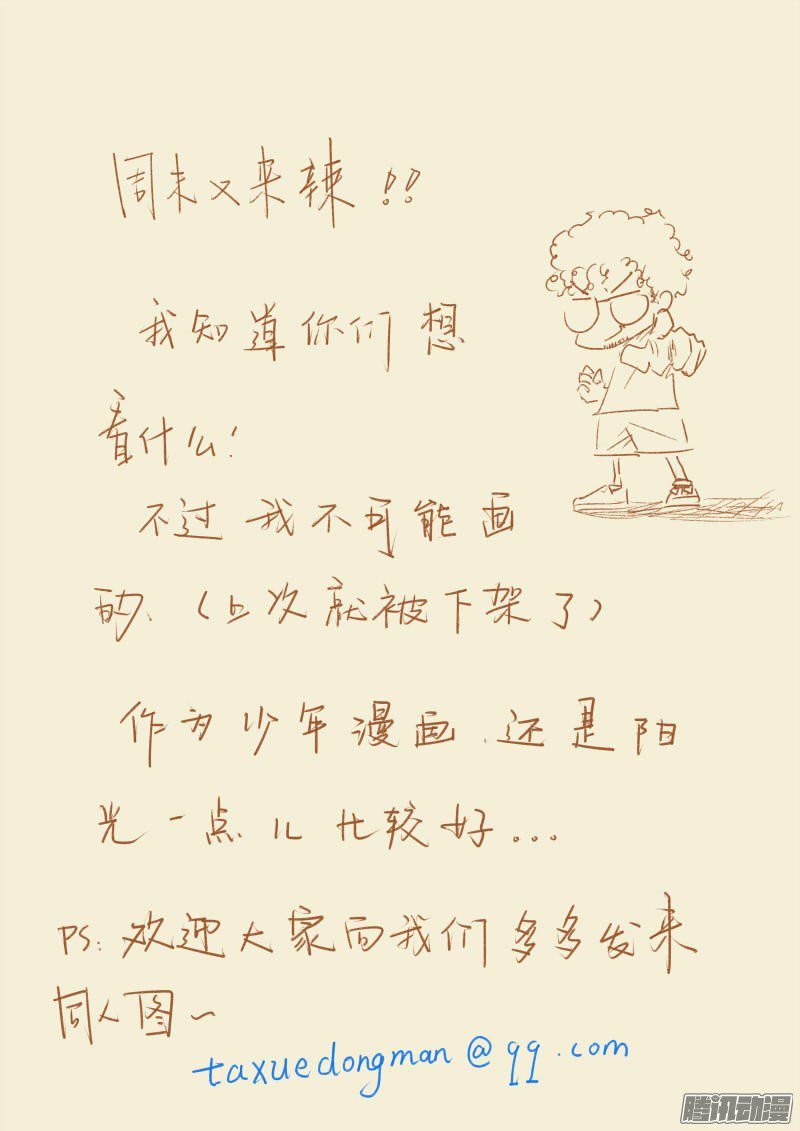 周末又来辣!!
我知道你们想
看什么!
不过我不可能画
的、(上次就被下架了)
作为少年漫画.还是阳
光一点儿比较好...
PS:欢迎大家向我们多多发来
同人图~
taxuedongman@qq.com
腾讯动漫